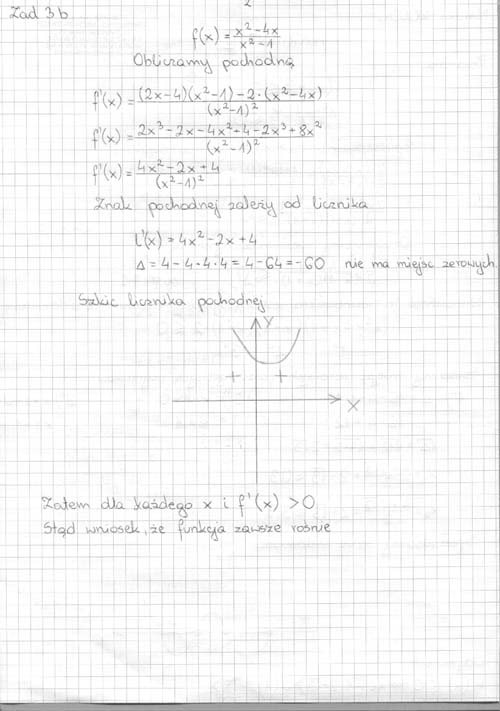 Zad 3b
f(x) = (x² - 4x)/(x² - 1)
Obliczamy pochodną
f'(x) = ((2x-4)(x²-1) - 2·(x²-4x))/(x²-1)²
f'(x) = (2x³ - 2x - 4x² + 4 - 2x³ + 8x²)/(x²-1)²
f'(x) = (4x² - 2x + 4)/(x²-1)²
Znak pochodnej zależy od licznika
l'(x) = 4x² - 2x + 4
Δ = 4 - 4·4·4 = 4 - 64 = -60 nie ma miejsc zerowych.
Szkic licznika pochodnej
Y
+ +
X
Zatem dla każdego x i f'(x) > 0
Stąd wniosek, że funkcja zawsze rośnie